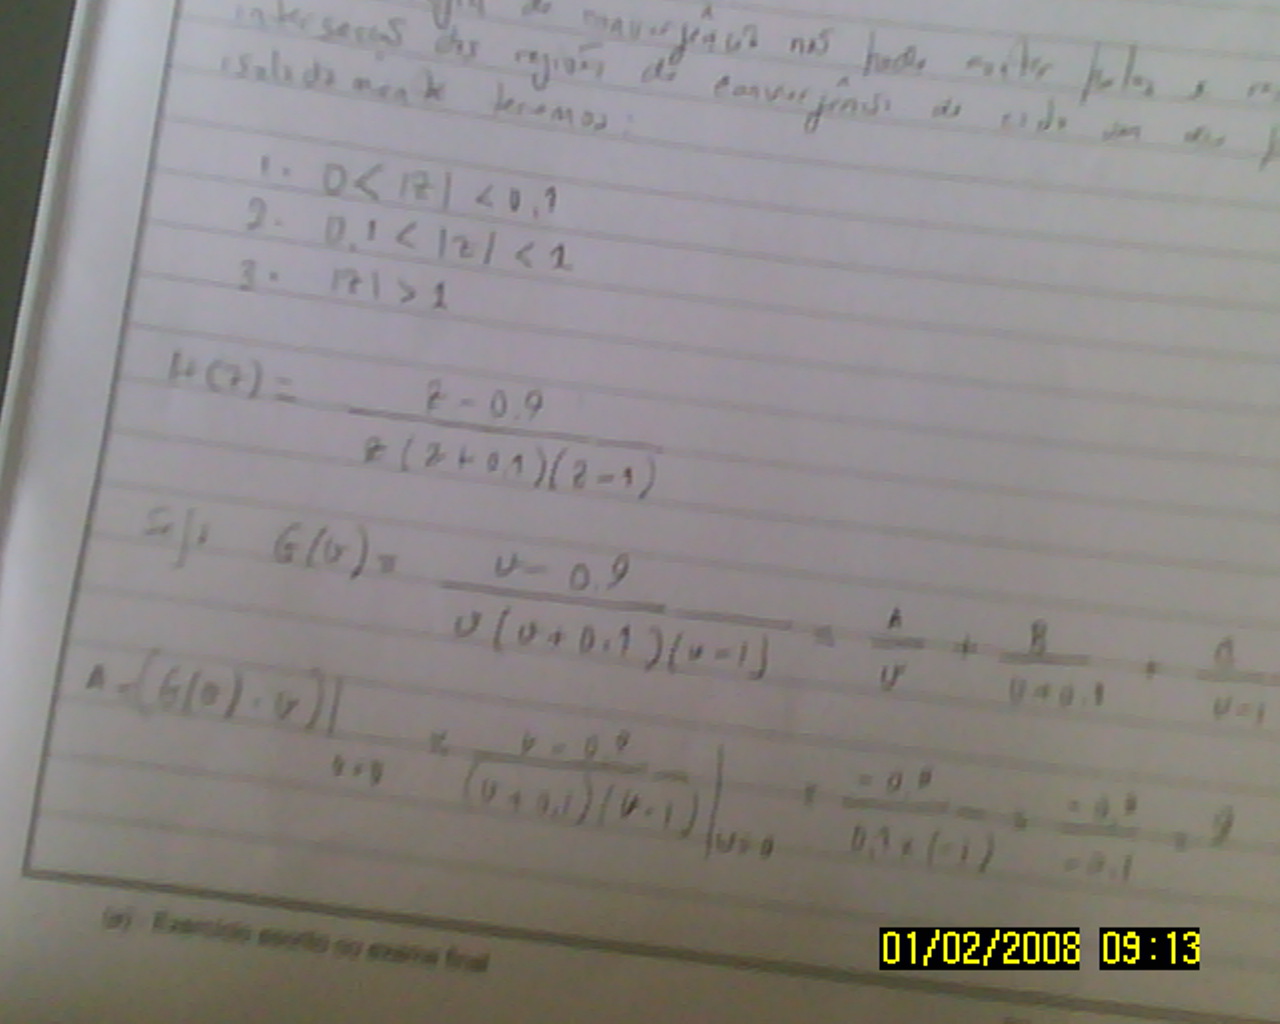 de convergência não pode conter polos e
interseção das regiões de convergência de cada um dos
isoladamente teremos:
1. 0 < |z| < 0,1
2. 0,1 < |z| < 1
3. |z| > 1
H(z) = z - 0,9 / z(z + 0,1)(z - 1)
Seja G(v) = v - 0,9 / v(v + 0,1)(v - 1) = A/v + B/v + 0,1 + C/v - 1
A = (G(v) · v)| v=0 = v - 0,9 / (v + 0,1)(v - 1) | v=0 = -0,9 / 0,1 × (-1) = -0,9 / -0,1 = 9
(a) Exercício escrito ou exame final
01/02/2008 09:13